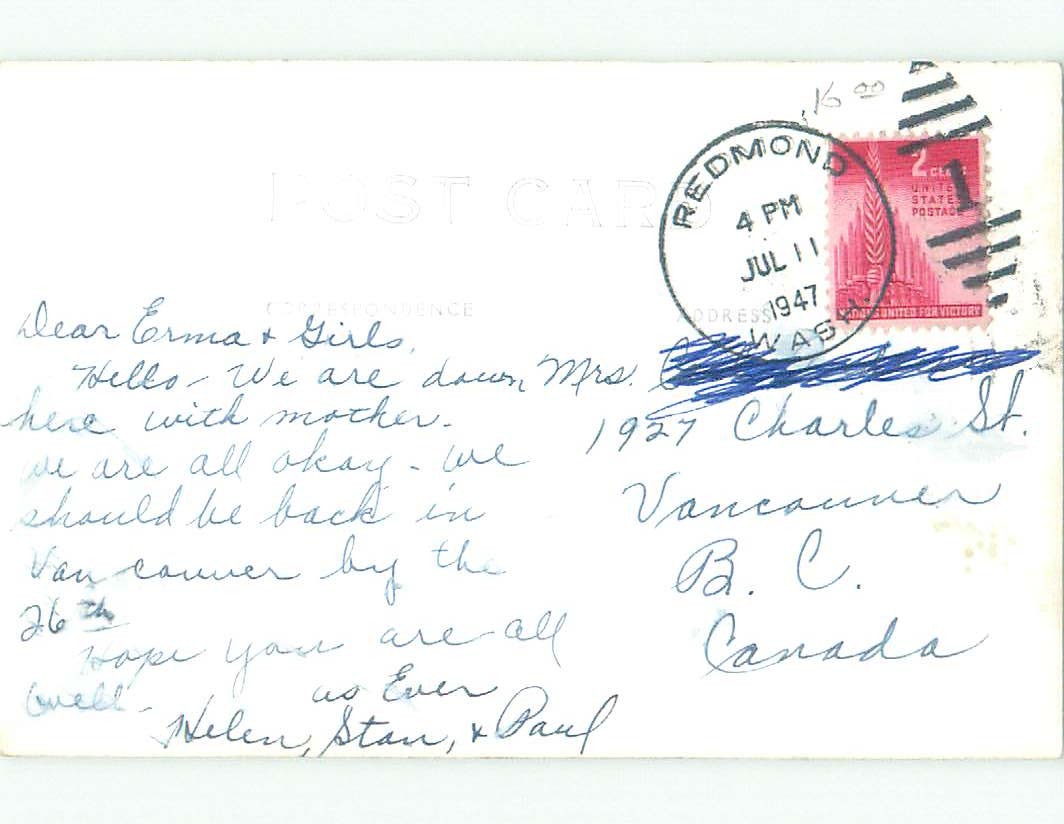 16 00
POST CARD
REDMOND
4 PM
JUL 11
1947
WASH.
2 CE
UNITE
STATES
POSTAGE
1
UNITED FOR VICTORY
CORRESPONDENCE
ADDRESS
Dear Erma & Girls,
Hello - We are down
here with mother.
we are all okay - we
should be back in
Vancouver by the
26th
Hope you are all
well -
as Ever
Helen, Stan, & Paul
Mrs.
1927 Charles St.
Vancouver
B. C.
Canada